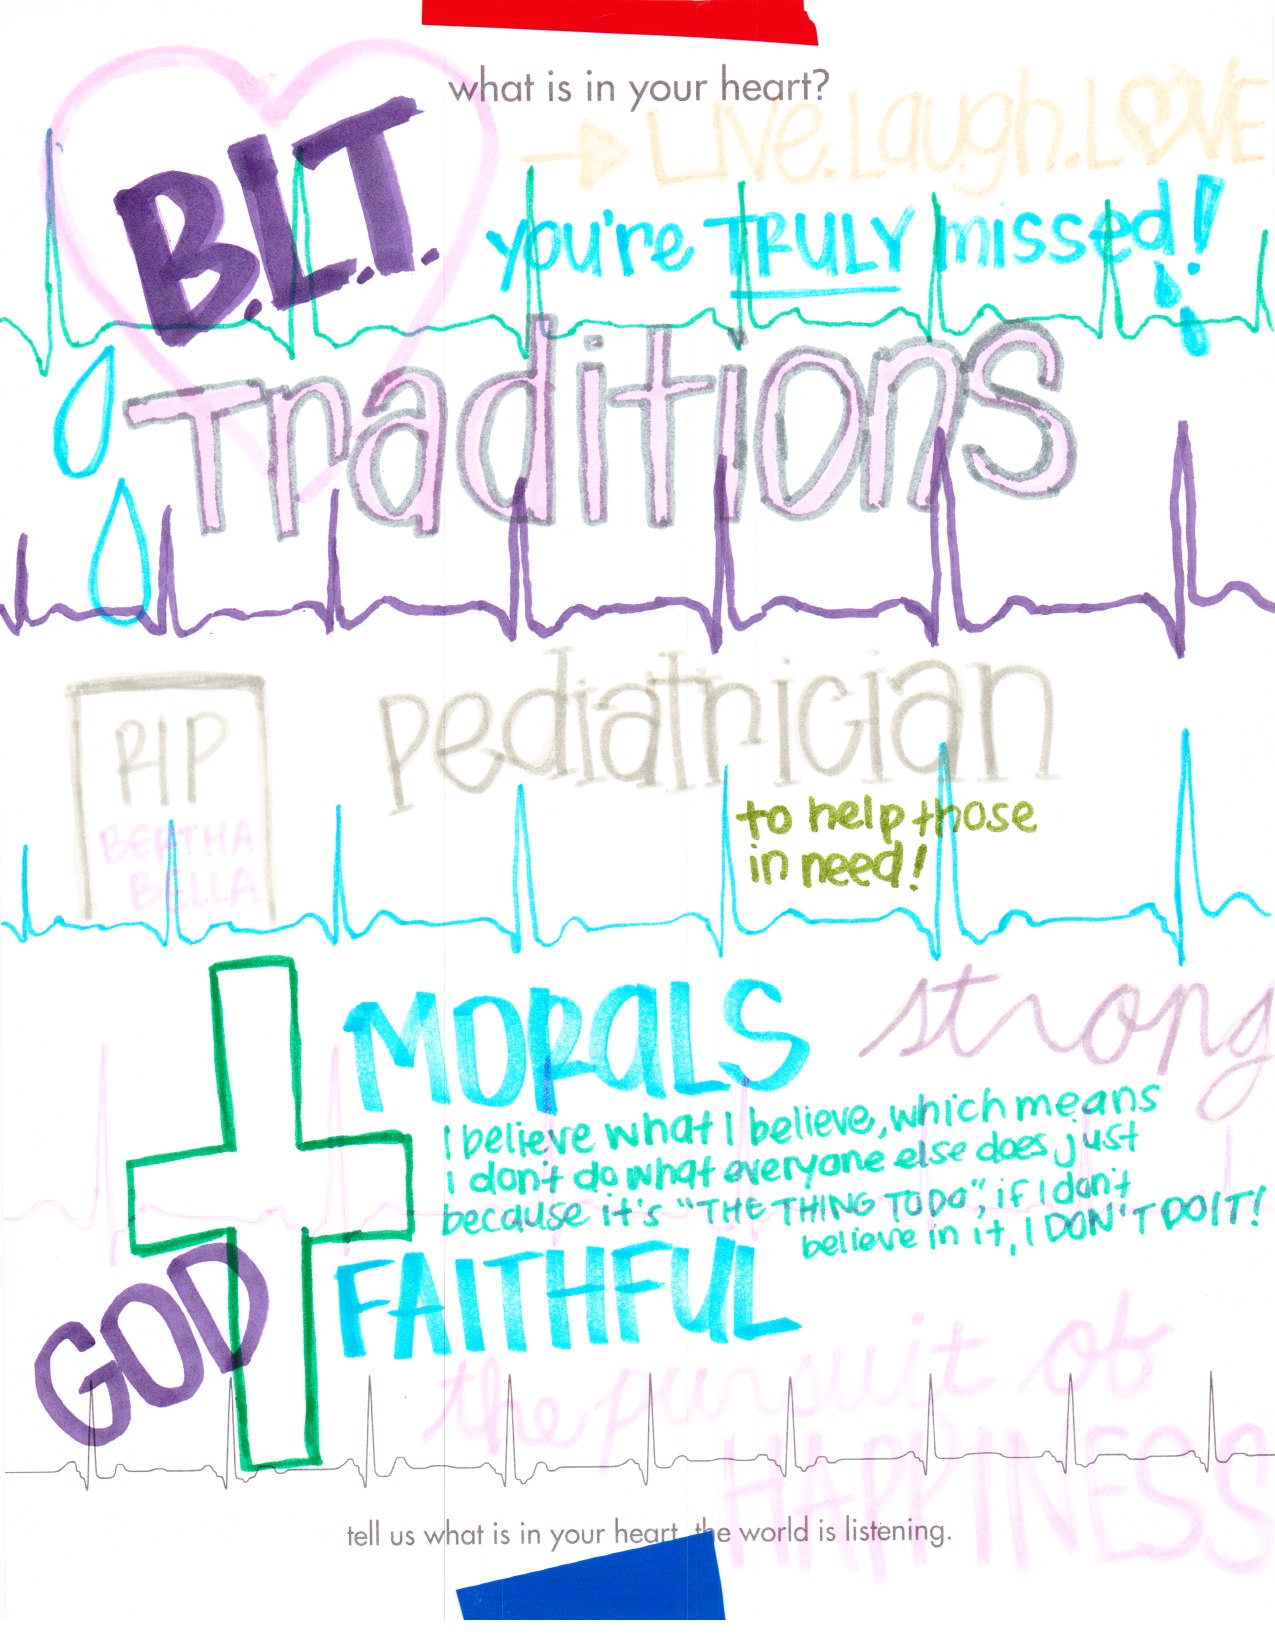 what is in your heart?
Live.Laugh.LOVE
B.L.T.
you're TRULY missed!
Traditions
RIP
BERTHA
BELLA
pediatrician
to help those
in need!
MORALS
strong
I believe what I believe, which means
i don't do what everyone else does just
because it's "THE THING TO DO", if I don't
believe in it, I DON'T DO IT!
GOD
FAITHFUL
the pursuit of
HAPPINESS
tell us what is in your heart, the world is listening.